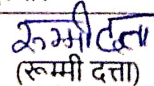 रूम्मी दत्ता
(रूम्मी दत्ता)